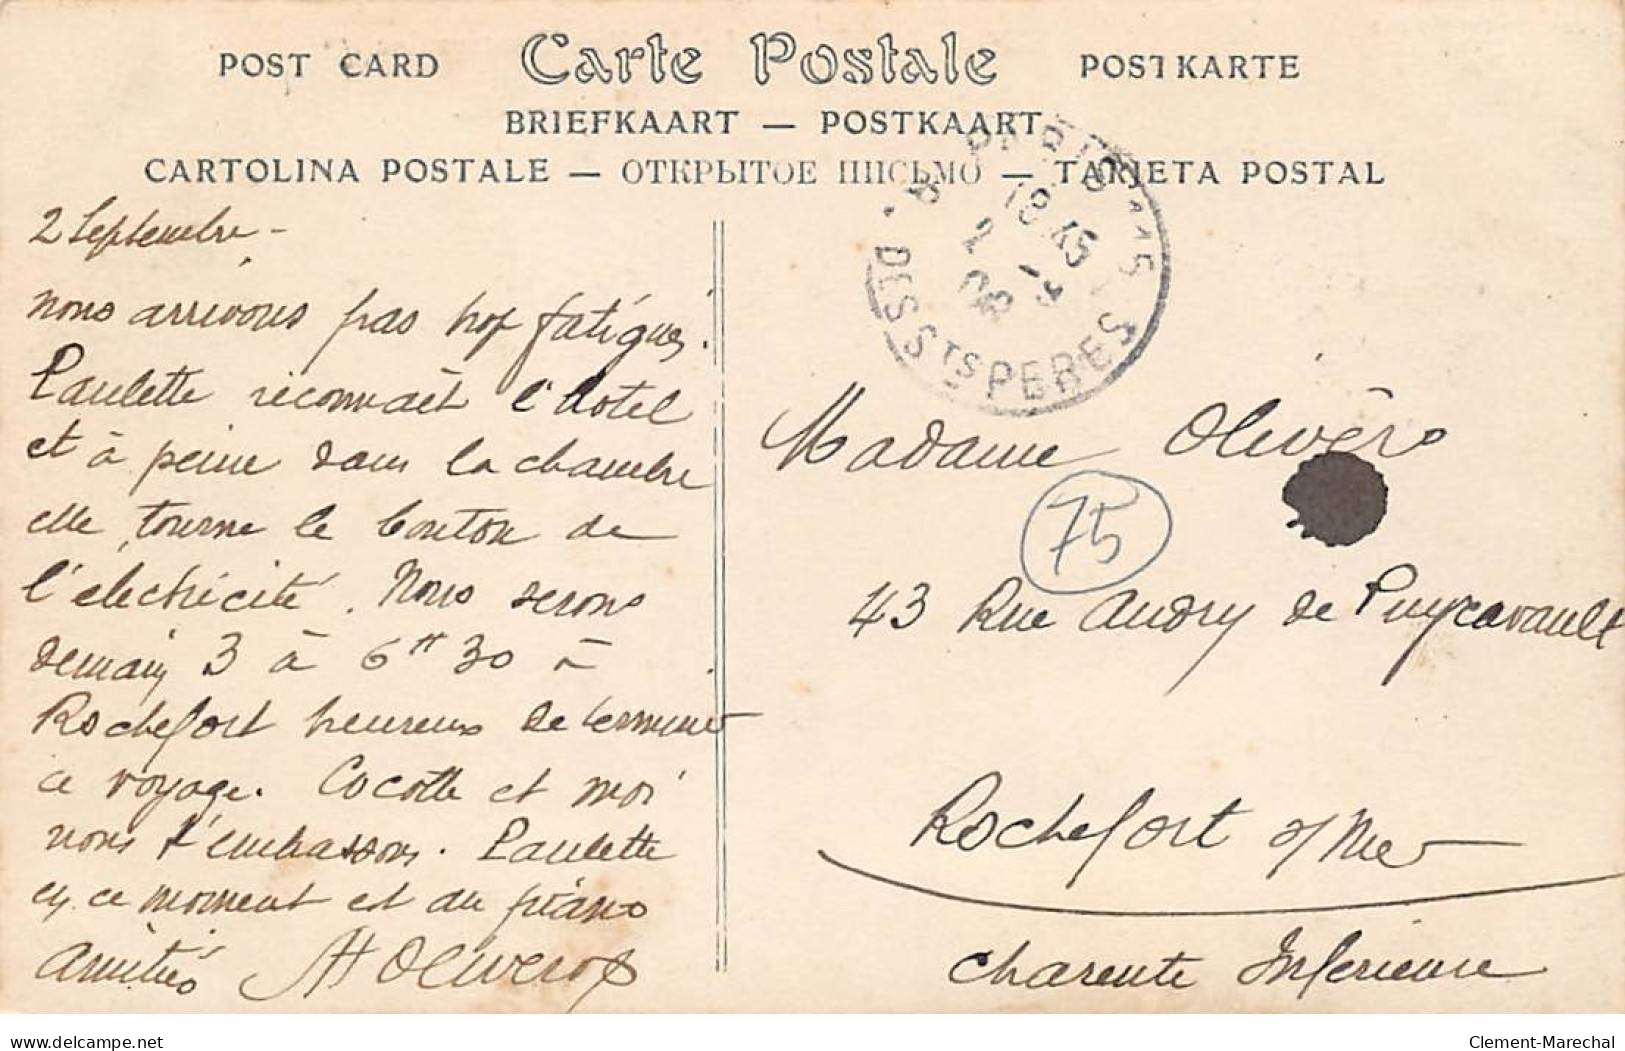 POST CARD Carte Postale POSTKARTE
BRIEFKAART — POSTKAART
CARTOLINA POSTALE — ОТКРЫТОЕ ПИСЬМО — TARJETA POSTAL
PARIS
18 45
2 - 9
DES STS PERES
2 Septembre -
Nous arrivons pas trop fatigués.
Paulette reconnaît l'hotel
et à peine dans la chambre
elle tourne le bouton de
l'électricité. Nous serons
demain 3 à 6H 30 à
Rochefort heureux de terminer
ce voyage. Cocotte et moi
nous t'embrassons. Paulette
en ce moment est au piano
Amitiés Oliveros
Madame Olivero
75
43 Rue Audry de Puyravault
Rochefort s/ Mer
Charente Inferieure
delcampe.net
Clement-Marechal